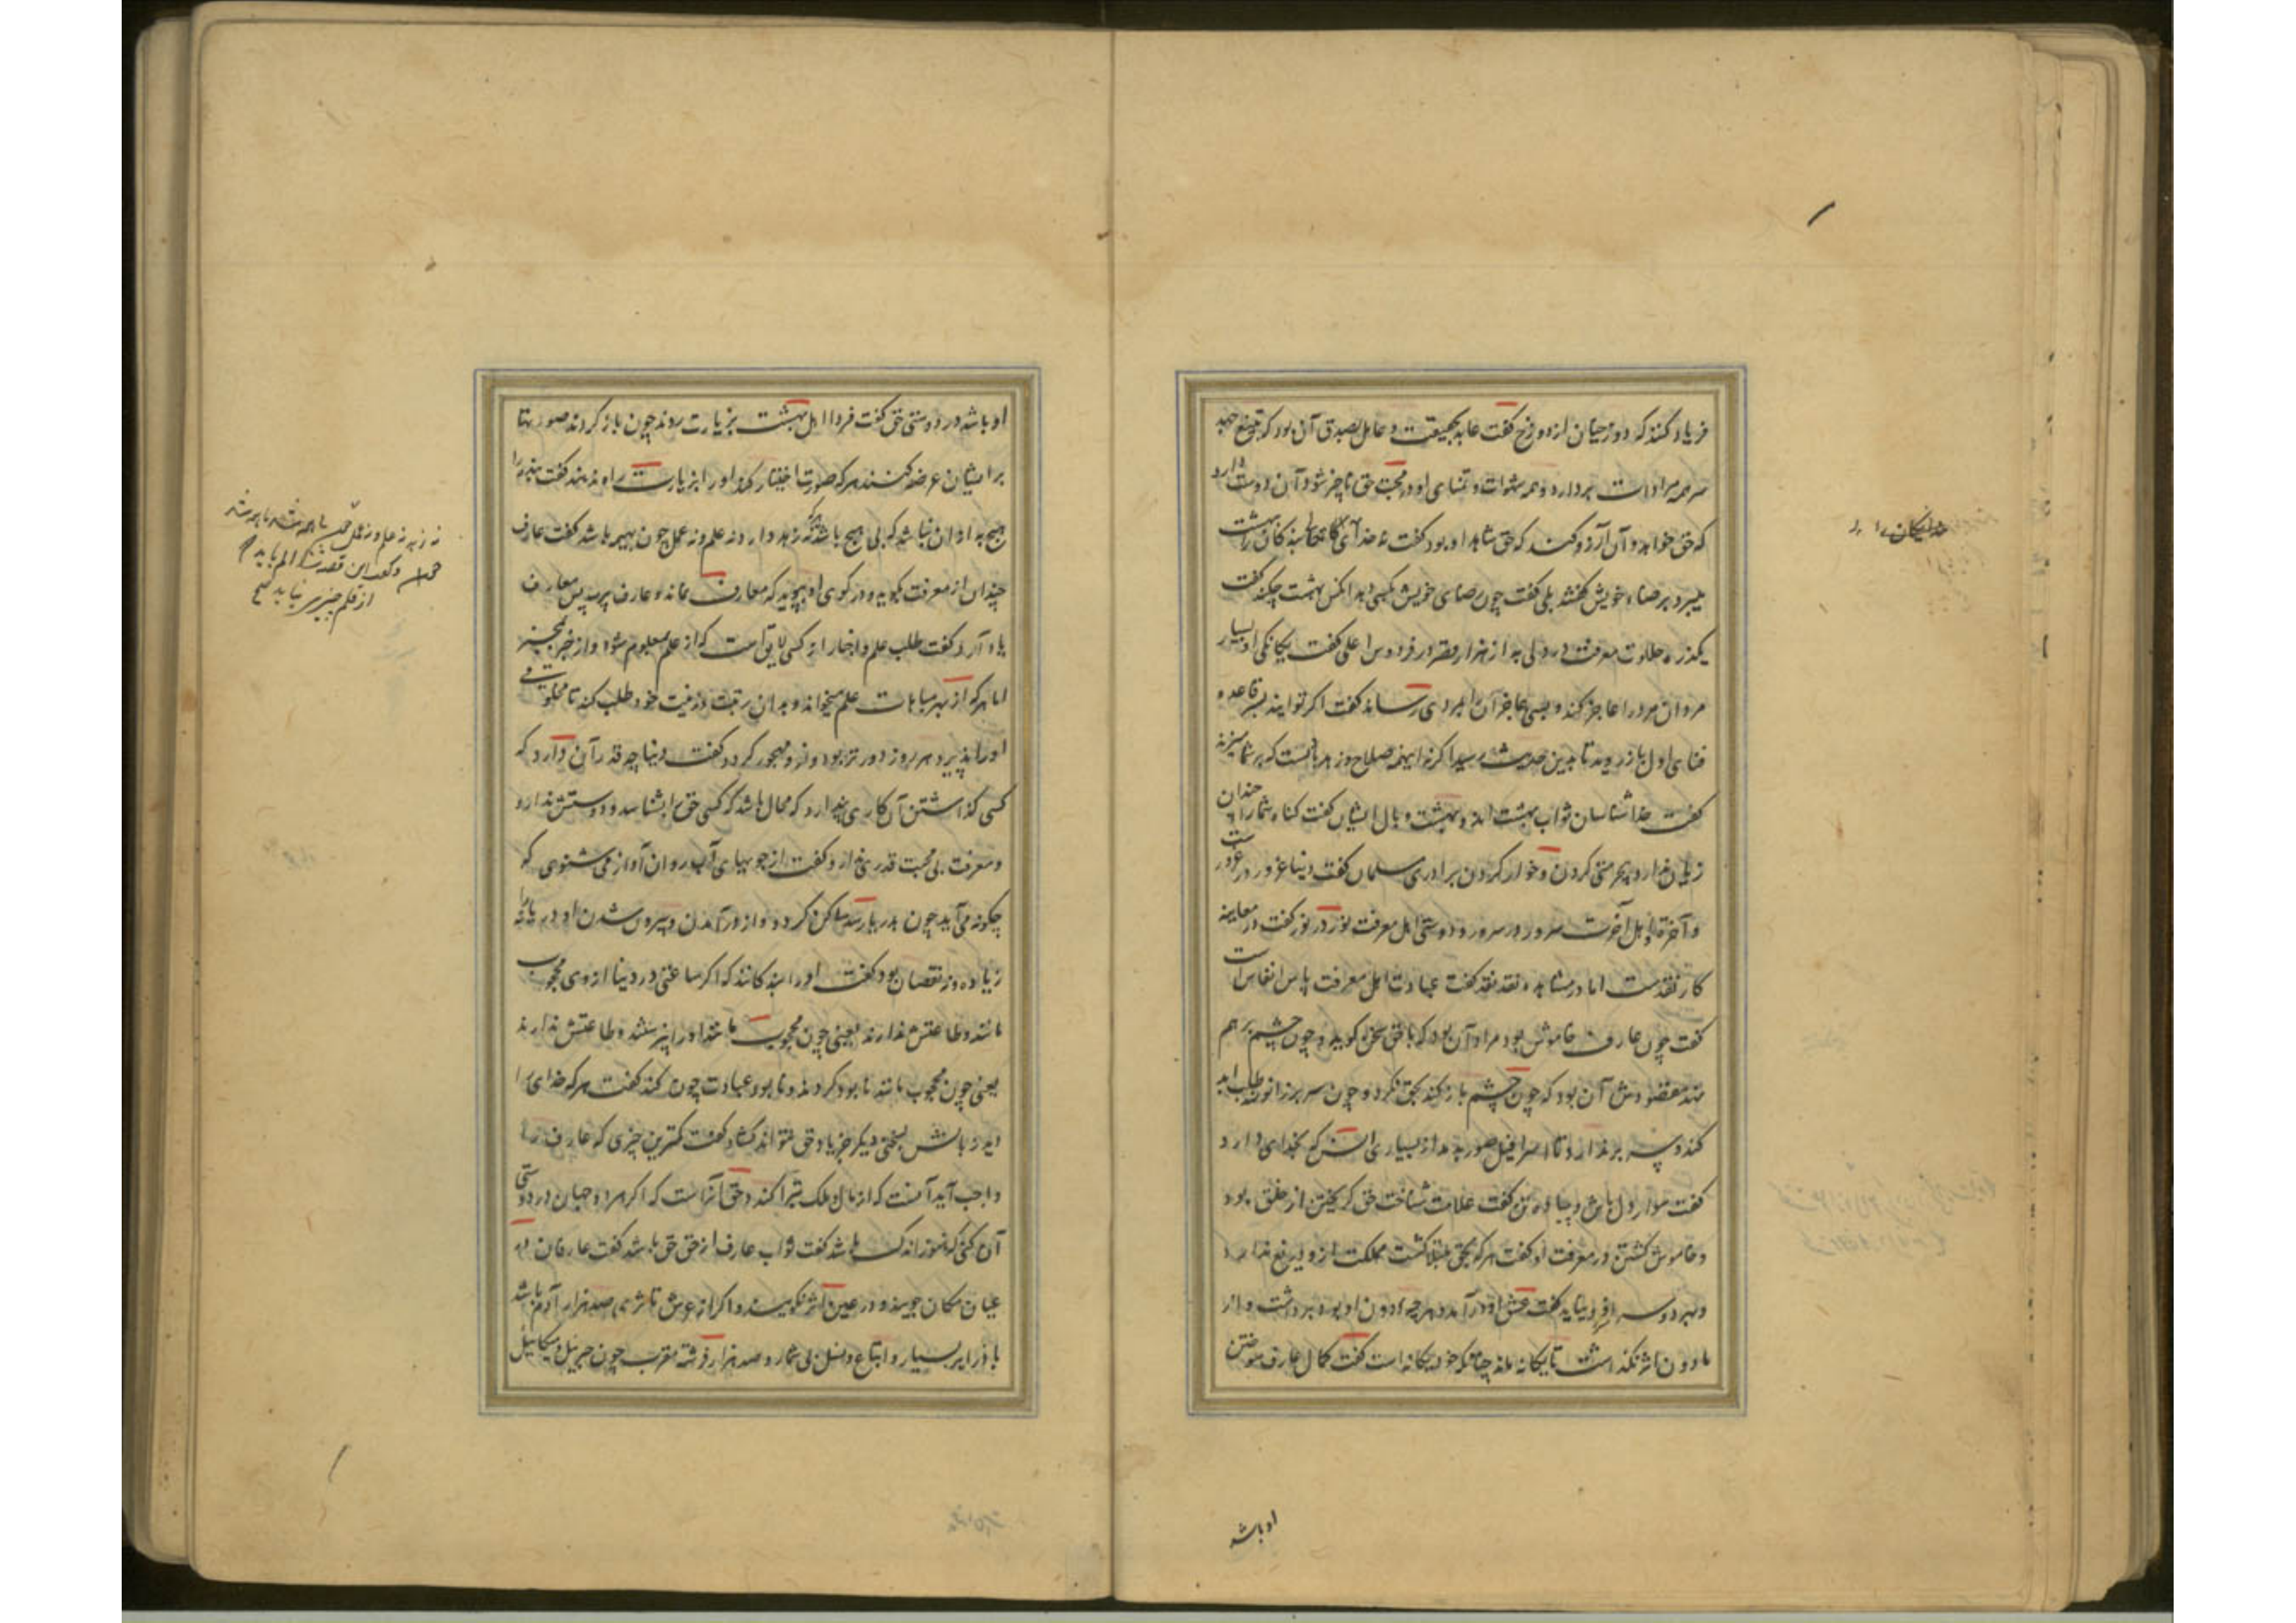 فریاد کنند که دوزخیان از دوزخ گفت عابد بحقیقت و عامل بصدق آن بود که بتیغ جهد
سر همه مرادات بردارد و همه شهوات و تمنای او در محبت حق ناچیز شود آن دوست دارد
که حق خواهد و آن آرزو کند که حق شاهد او بود گفت نه خدای تعالی بندگان را بهشت
میبرد برضاء خویش گفتند بلی گفت چون رضای خویش بکسی دهد آنکس بهشت چکند گفت
یکذره حلاوت معرفت در دلی به از هزار قصر در فردوس اعلی گفت یکانکی او بسیار
مردان مرد را عاجز کند و بسی عاجز آنرا بمردی رساند گفت اگر توانید بسر قاعده
فنای اول باز روید تا بدین حدیث رسید اگر نه اینهمه صلاح و زهد بادست که بر شما میزند
گفت خداشناسان ثواب بهشت اند و بهشت وبال ایشان گفت گناه شما را چندان
زیان ندارد که بیحرمتی کردن و خوار کردن برادری مسلمان گفت دنیا غرور در غرورست
و آخرت اهل آخرت سرور در سرور و دوستی اهل معرفت نور در نور گفت در معاینه
کار نقدست اما در مشاهده نقد نقد گفت عبادت اهل معرفت پاس انفاس است
گفت چون عارف خاموش بود مراد آن بود که با حق سخن گوید و چون چشم بر هم
نهد مقصودش آن بود که چون چشم باز کند بحق نگرد و چون سر بر زانو نهد طلب آن
کند و سر برندارد تا اسرافیل صور بدمد از بسیاری انس که بخدای دارد
گفت سوار دل باش و پیاده تن گفت علامت شناخت حق گریختن از خلق بود
و خاموش گشتن در معرفت او گفت هر که بحق مبتلا گشت مملکت ازو دریغ ندارند
و بهر دو سرا فرو نیاید گفت عشق او درآمد و هر چه دون او بود برداشت و از
مادون اثر نگذاشت تا یگانه ماند چنانکه خود یگانه است گفت کمال عارف سوختن
او باشد
او باشد در دوستی حق گفت فردا اهل بهشت بزیارت روند چون باز گردند صورتها
بر ایشان عرضه کنند هر که صورتی اختیار کند او را بزیارت راه ندهند گفت بنده را
هیچ به از آن نباشد که بی هیچ باشد نه زهد دارد نه علم و نه عمل چون بیهمه باشد گفت عارف
چندان از معرفت بگوید و در کوی او بپوید که معارف نماند و عارف برسد پس معارف
یاد آرد گفت طلب علم و اخبار از کسی لایق است که از علم بمعلوم شود و از خبر بمخبر
اما هر که از بهر مباهات علم میخواند و بدان رتبت و زینت خود طلب کند تا مخلوقی
او را پذیرد هر روز دورتر بود و ازو مهجور گردد گفت دنیا چه قدر آن دارد که
کسی گذاشتن آن کاری پندارد که محال باشد که کسی حق را بشناسد و دوستش ندارد
و معرفت بی محبت قدری ندارد گفت از جویهای آب روان آواز می شنوی که
چگونه می آید چون بدریا رسد ساکن گردد و از در آمدن و بیرون شدن او دریا را نه
زیاده و نه نقصان بود گفت او را بندگانند که اگر ساعتی در دنیا از وی محجوب
مانند و طاعتش ندارند یعنی چون محجوب مانند او را پرستند و طاعتش ندارند
یعنی چون محجوب مانند نابود گردند و نابود عبادت چون کند گفت هر که خدای را
زبانش بسخنی دیگر جز یاد حق نتواند گشاد گفت کمترین چیزی که عارف را
واجب آید آنست که از مال و ملک تبرا کند و حق آنست که اگر هر دو جهان در دوستی
آن کنی که هنوز اندک باشد گفت ثواب عارف از حق حق باشد گفت عارفان در
عیان مکان جویند و در عین اثر نگویند و اگر از عرش تا ثری صد هزار آدم باشد
با ذرایر بسیار و اتباع و نسل بی شمار و صد هزار فرشته مقرب چون جبریل و میکائیل